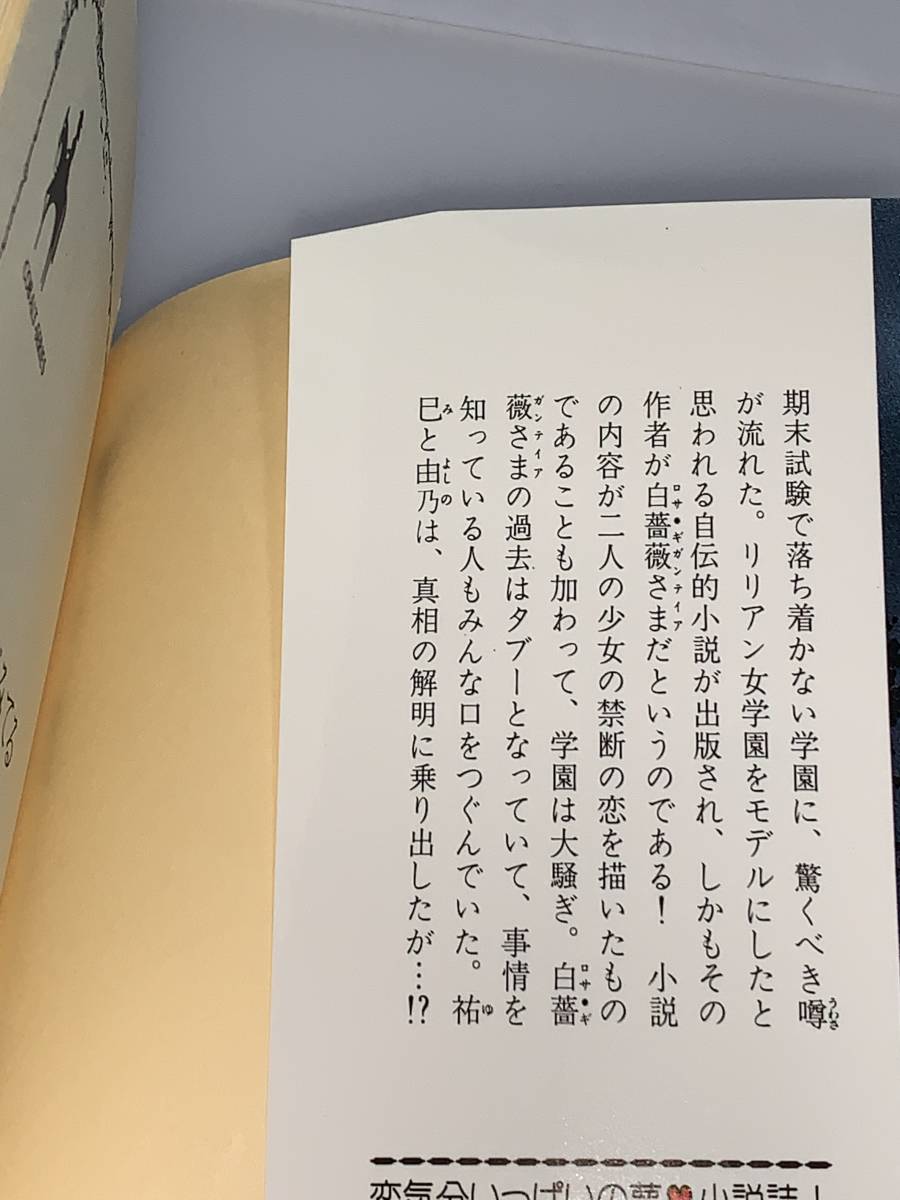 期末試験で落ち着かない学園に、驚くべき噂
が流れた。リリアン女学園をモデルにしたと
思われる自伝的小説が出版され、しかもその
作者が白薔薇さまだというのである！　小説
の内容が二人の少女の禁断の恋を描いたもの
であることも加わって、学園は大騒ぎ。白薔
薇さまの過去はタブーとなっていて、事情を
知っている人もみんな口をつぐんでいた。祐
巳と由乃は、真相の解明に乗り出したが…!?
恋気分いっぱいの夢♥小説誌！